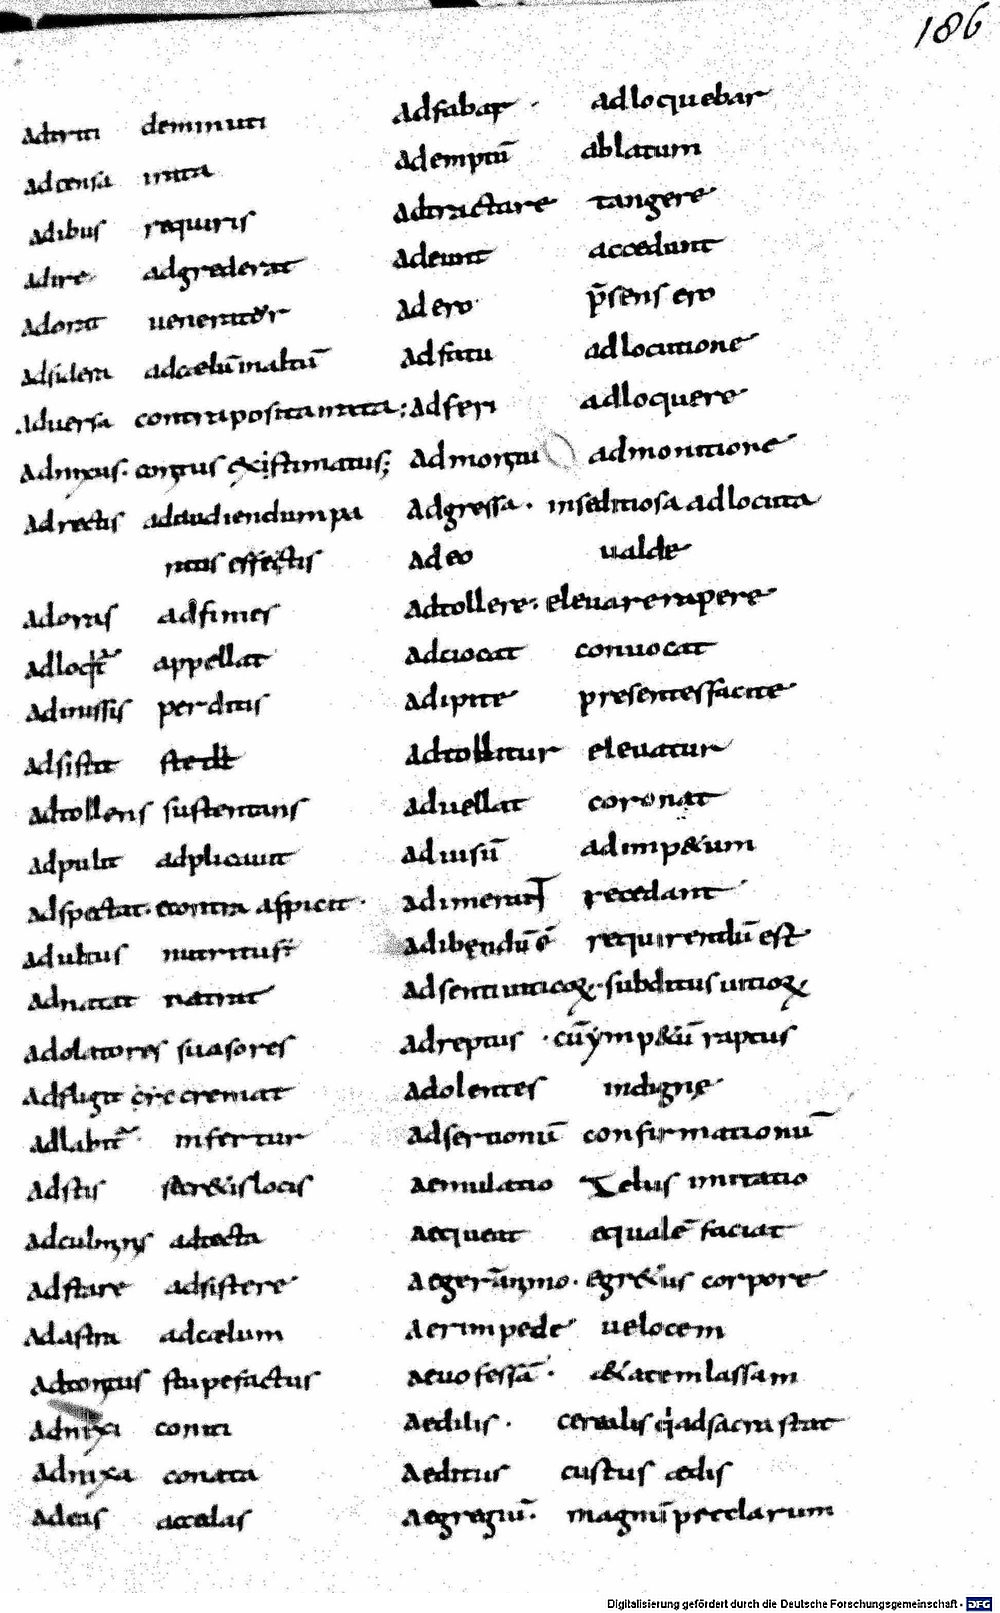 186
Adtriti deminuti
Adcensa irata
Adibus requiris
Adire adgrederat
Adorat ueneratur
Adsidera adcælū inaltū
Aduersa contraposita irata;
Adnixus. conatus existimatus;
Adrectis adaudiendum pa
ratis effectis
Adoras adfines
appellat
Admissis perditis
Adsistit stetit
Adtollens sustentans
Adpulit adplicauit
Adspectat. econtra aspicit.
Adultus nutritus
Adnatat natat
Adolatores suasores
Adfligit cremat
infertur
Adstis locis
adtecta
Adstare adsistere
Adastra adcælum
Adtonitus stupefactus
Adnixi conati
Adnixa conata
Adeas accelas
Adfabar. adloquebar
Ademptū ablatum
Adtractare tangere
Adeunt accedunt
Adero p̄sens ero
Adfatu adlocutione
Adferi adloquere
Admonitu admonitione
Adgressa. inseditiosa adlocuta
Adeo ualde
Adtollere. eleuare rapere
Adciocat conuocat
Adipite presentes facite
Adtollitur eleuatur
Aduellat coronat
Aduisū adimp&um
recedant
Adibendū ē requirendū est
subditus
Adreptus. cū ymp&ū raptus
Adolentes indigne
Adsertionū confirmationū
Aemulatio Zelus imitatio
Aequat equalē faciat
Aeger animo. egr&us corpore
Aerimpede uelocem
Aeuo fessā. &atem lassam
Aedilis. cerealis q̄ adsacra stat
Aeditus custus ædis
Aegregiū. magnū preclarum
Digitalisierung gefördert durch die Deutsche Forschungsgemeinschaft - DFG